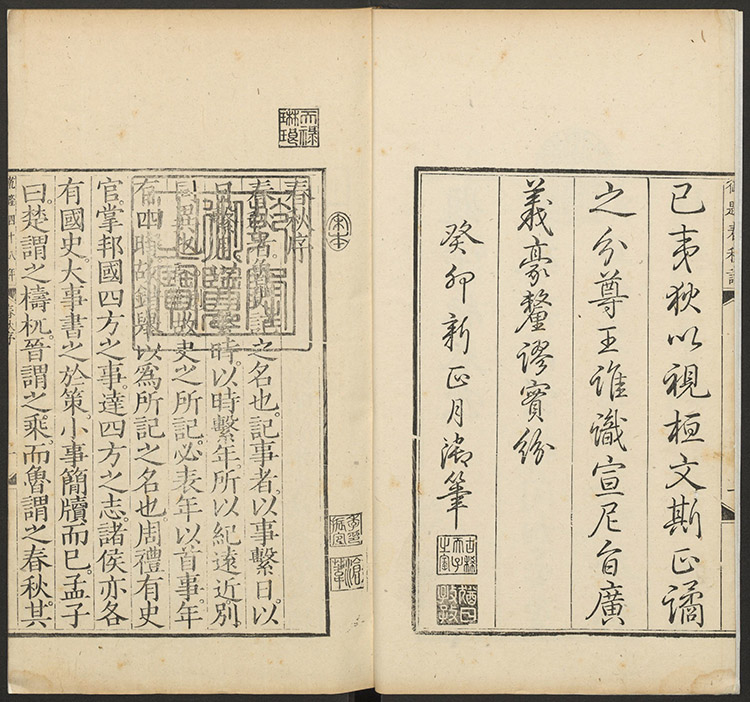 御題春秋詩
已夷狄以視桓文斯正譎
之分尊王誰識宣尼旨廣
義豪釐謬實紛
癸卯新正月御筆
古稀天子之寶
猶日孜孜
天祿琳琅
宋本
滄葦
春秋序
春秋者魯史記之名也。記事者。以事繫日。以
日繫月。以月繫時。以時繫年。所以紀遠近。別
同異也。故史之所記。必表年以首事。年
有四時。故錯舉以為所記之名也。周禮有史
官。掌邦國四方之事。達四方之志。諸侯亦各
有國史。大事書之於策。小事簡牘而已。孟子
曰。楚謂之檮杌。晉謂之乘。而魯謂之春秋。其
乾隆四十八年
春秋序